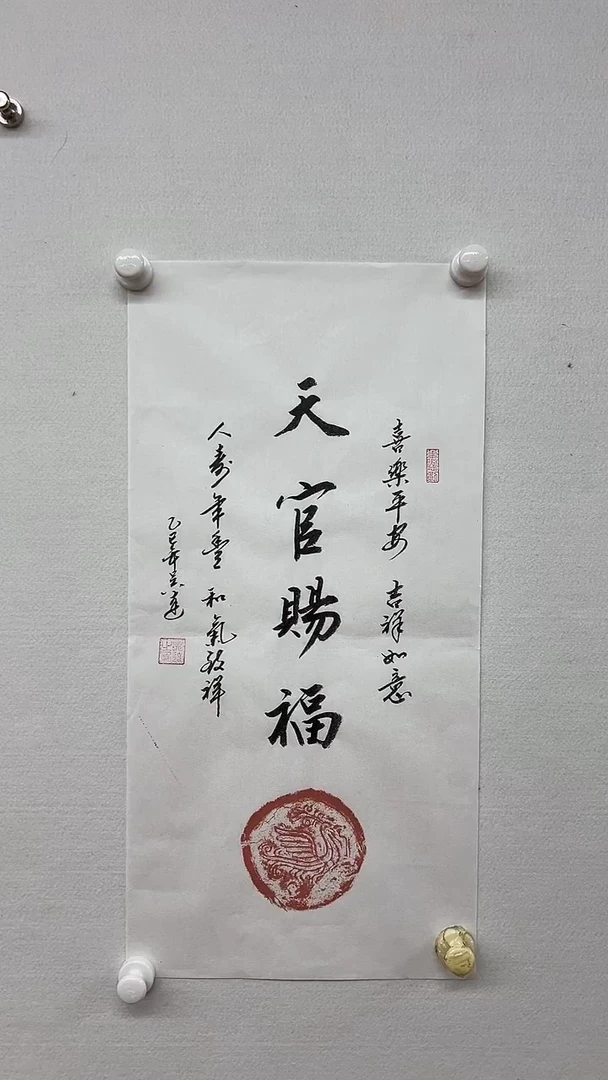 喜樂平安 吉祥如意
天官賜福
人壽年豐 和氣致祥
乙巳